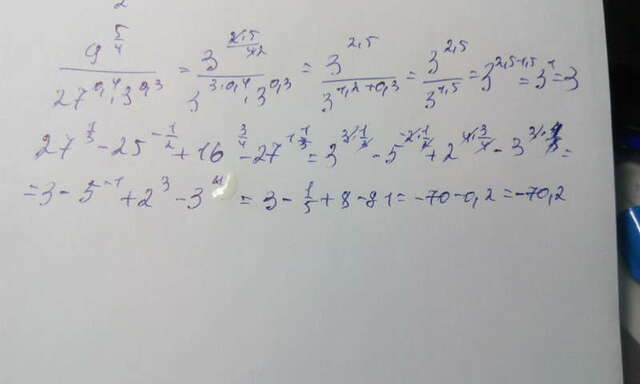 2
9^(5/4) / (27^(0,4) · 3^(0,3)) = 3^(2·5/4 2) / (3^(3·0,4) · 3^(0,3)) = 3^(2,5) / 3^(1,2+0,3) = 3^(2,5) / 3^(1,5) = 3^(2,5-1,5) = 3^1 = 3
27^(1/3) - 25^(-1/2) + 16^(3/4) - 27^(1 1/3) = 3^(3·1/3) - 5^(-2·1/2) + 2^(4·3/4) - 3^(3·4/3) =
= 3 - 5^(-1) + 2^3 - 3^4 = 3 - 1/5 + 8 - 81 = -70 - 0,2 = -70,2